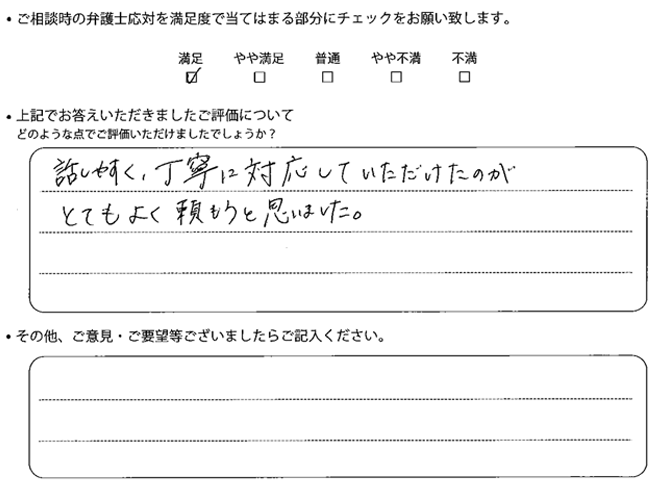 • ご相談時の弁護士応対を満足度で当てはまる部分にチェックをお願い致します。
満足 やや満足 普通 やや不満 不満
☑ □ □ □ □
• 上記でお答えいただきましたご評価について
どのような点でご評価いただけましたでしょうか？
話しやすく、丁寧に対応していただけたのが
とてもよく頼もうと思いました。
• その他、ご意見・ご要望等ございましたらご記入ください。